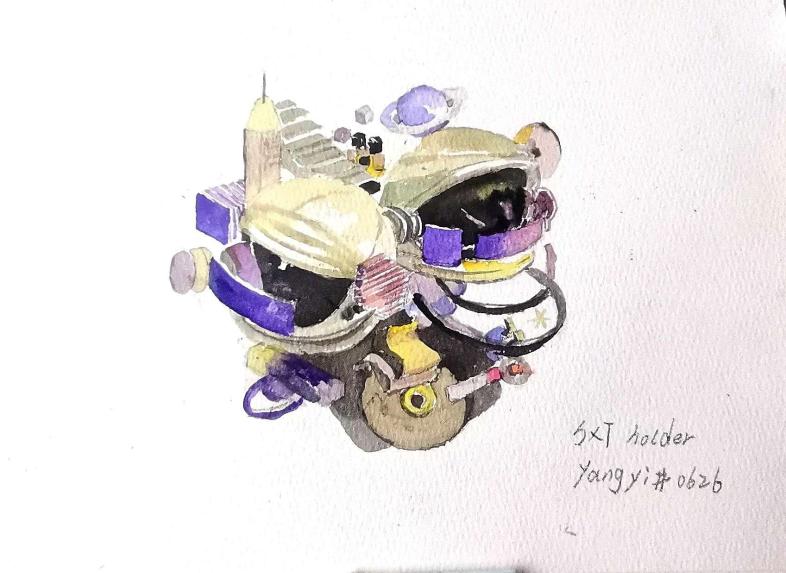 SXT holder
Yangyi#0626